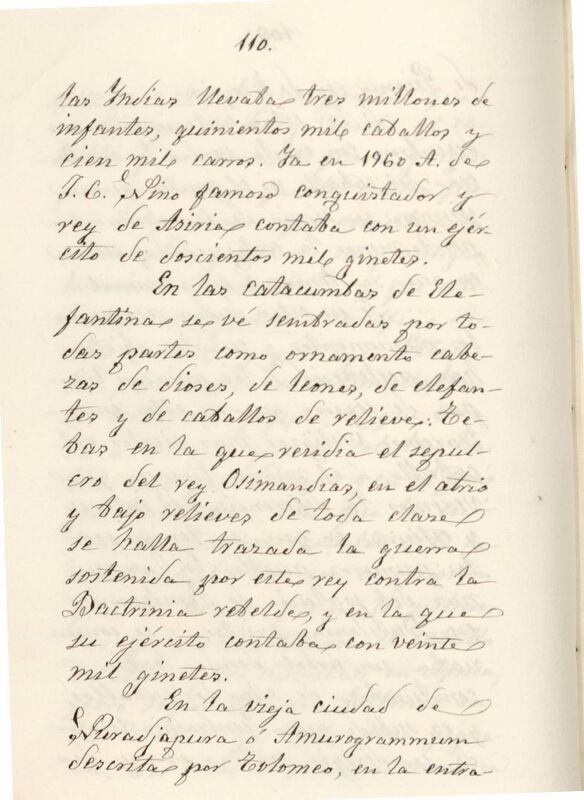 110.
las Indias llevaba tres millones de
infantes, quinientos mil caballos y
cien mil carros. Ya en 1960 A. de
J. C. Nino famoso conquistador y
rey de Asiria contaba con un ejér-
cito de doscientos mil ginetes.
En las catacumbas de Ele-
fantina se vé sembradas por to-
das partes como ornamento cabe-
zas de dioses, de leones, de elefan-
tes y de caballos de relieve: Te-
bas en la que residia el sepul-
cro del rey Osimandias, en el atrio
y bajo relieves de toda clase
se halla trazada la guerra
sostenida por este rey contra la
Bactrinia rebelde, y en la que
su ejército contaba con veinte
mil ginetes.
En la vieja ciudad de
Nuradjapura ó Amurogrammum
descrita por Tolomeo, en la entra-